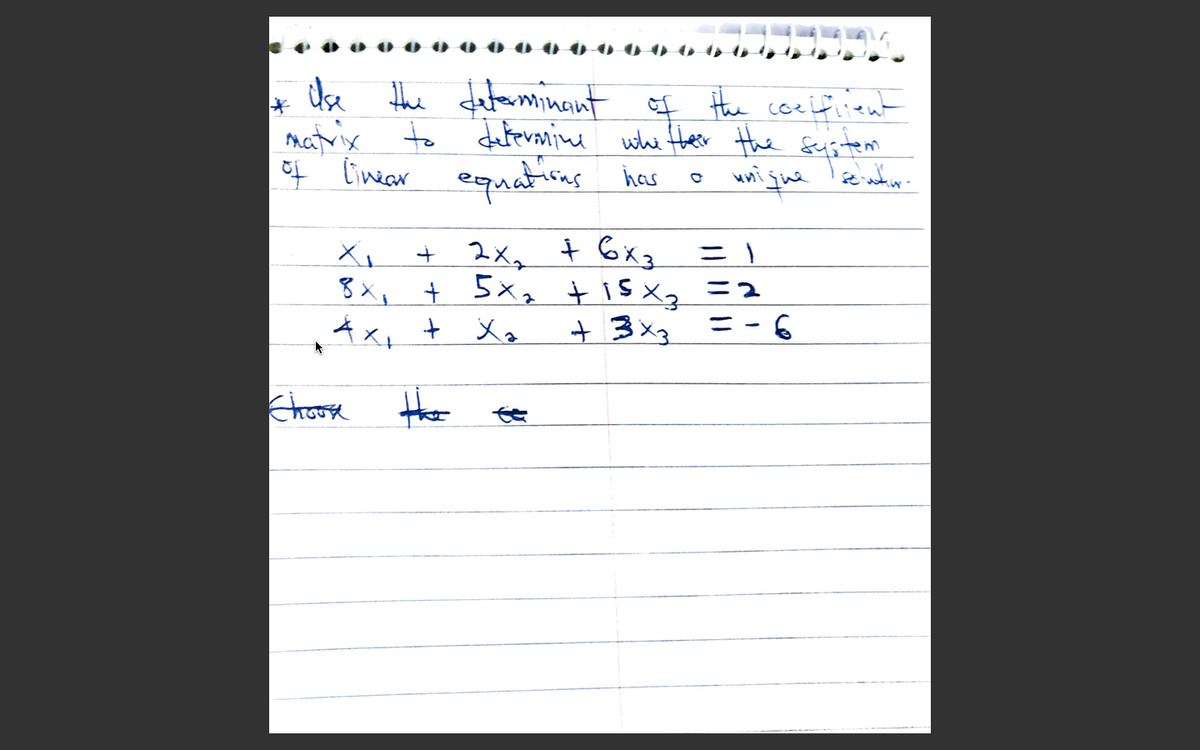 * Use the determinant of the coefficient
matrix to determine whether the system
of linear equations has a unique solution.
x₁ + 2x₂ + 6x₃ = 1
8x₁ + 5x₂ + 15x₃ = 2
4x₁ + x₂ + 3x₃ = -6
Choose the co